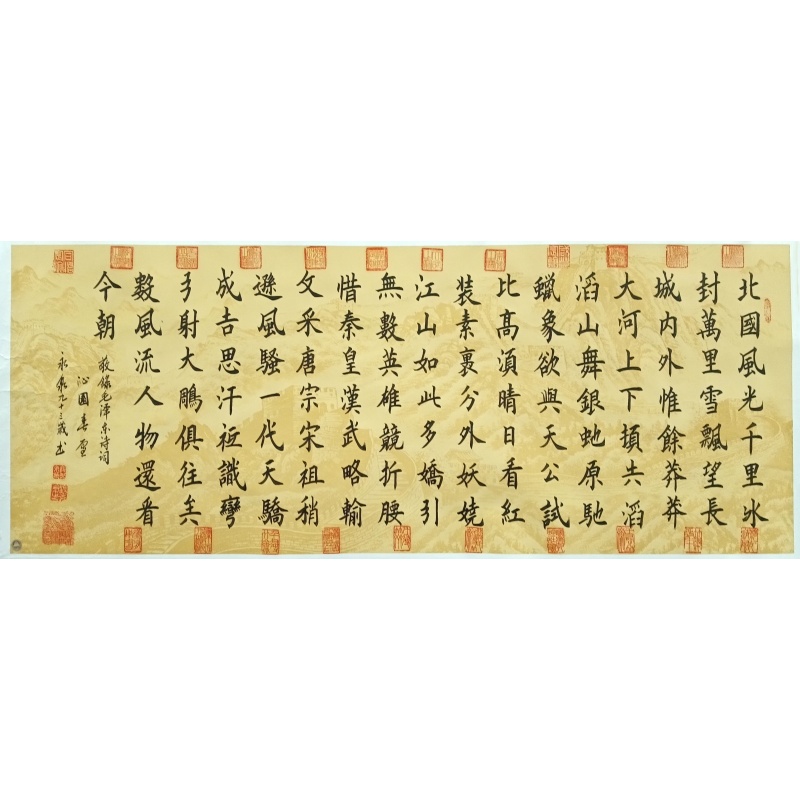 北國風光千里冰
封萬里雪飄望長
城内外惟餘莽莽
大河上下頓失滔
滔山舞銀蛇原馳
蠟象欲與天公試
比髙須晴日看紅
装素裹分外妖嬈
江山如此多嬌引
無數英雄競折腰
惜秦皇漢武略輸
文采唐宗宋祖稍
遜風騷一代天驕
成吉思汗衹識彎
弓射大鵰俱往矣
數風流人物還看
今朝
敬録毛澤东诗词
沁園春雪
永泉九十三歲书